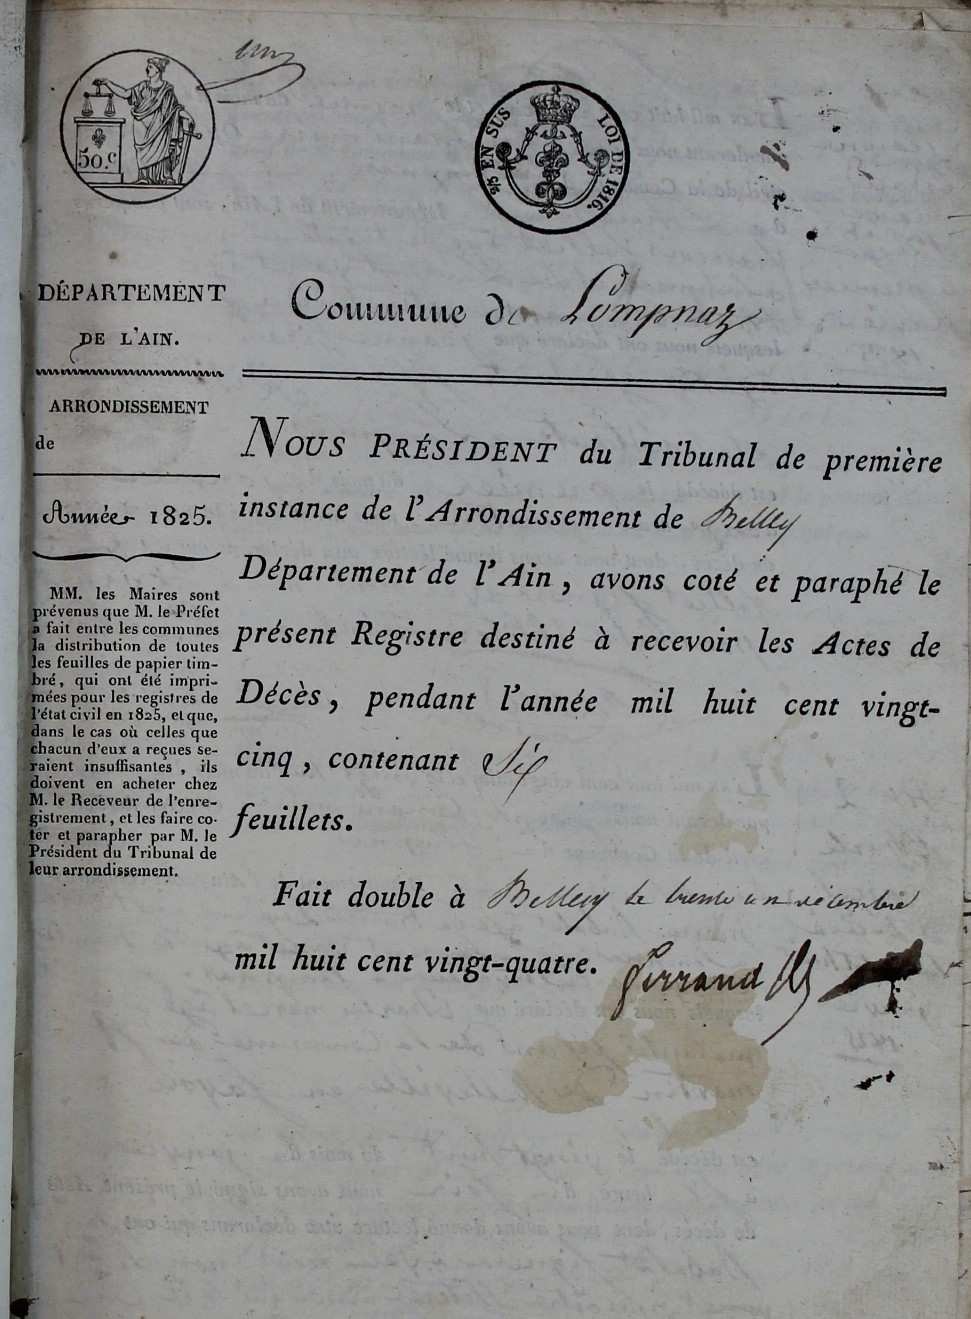 50.c
2/5 EN SUS
LOI DE 1816.
DÉPARTEMENT
DE L'AIN.
Commune de Lompnaz
ARRONDISSEMENT
de
Année 1825.
MM. les Maires sont
prévenus que M. le Préfet
a fait entre les communes
la distribution de toutes
les feuilles de papier tim-
bré, qui ont été impri-
mées pour les registres de
l'état civil en 1825, et que,
dans le cas où celles que
chacun d'eux a reçues se-
raient insuffisantes, ils
doivent en acheter chez
M. le Receveur de l'enre-
gistrement, et les faire co-
ter et parapher par M. le
Président du Tribunal de
leur arrondissement.
NOUS PRÉSIDENT du Tribunal de première
instance de l'Arrondissement de Belley
Département de l'Ain, avons coté et paraphé le
présent Registre destiné à recevoir les Actes de
Décès, pendant l'année mil huit cent vingt-
cinq, contenant Six
feuillets.
Fait double à Belley le trente un décembre
mil huit cent vingt-quatre.